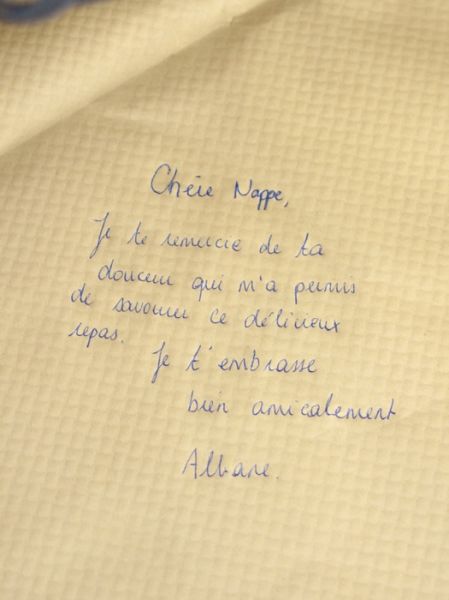 Chère Nappe,
Je te remercie de ta
douceur qui m'a permis
de savourer ce délicieux
repas.
Je t'embrasse
bien amicalement
Albane.